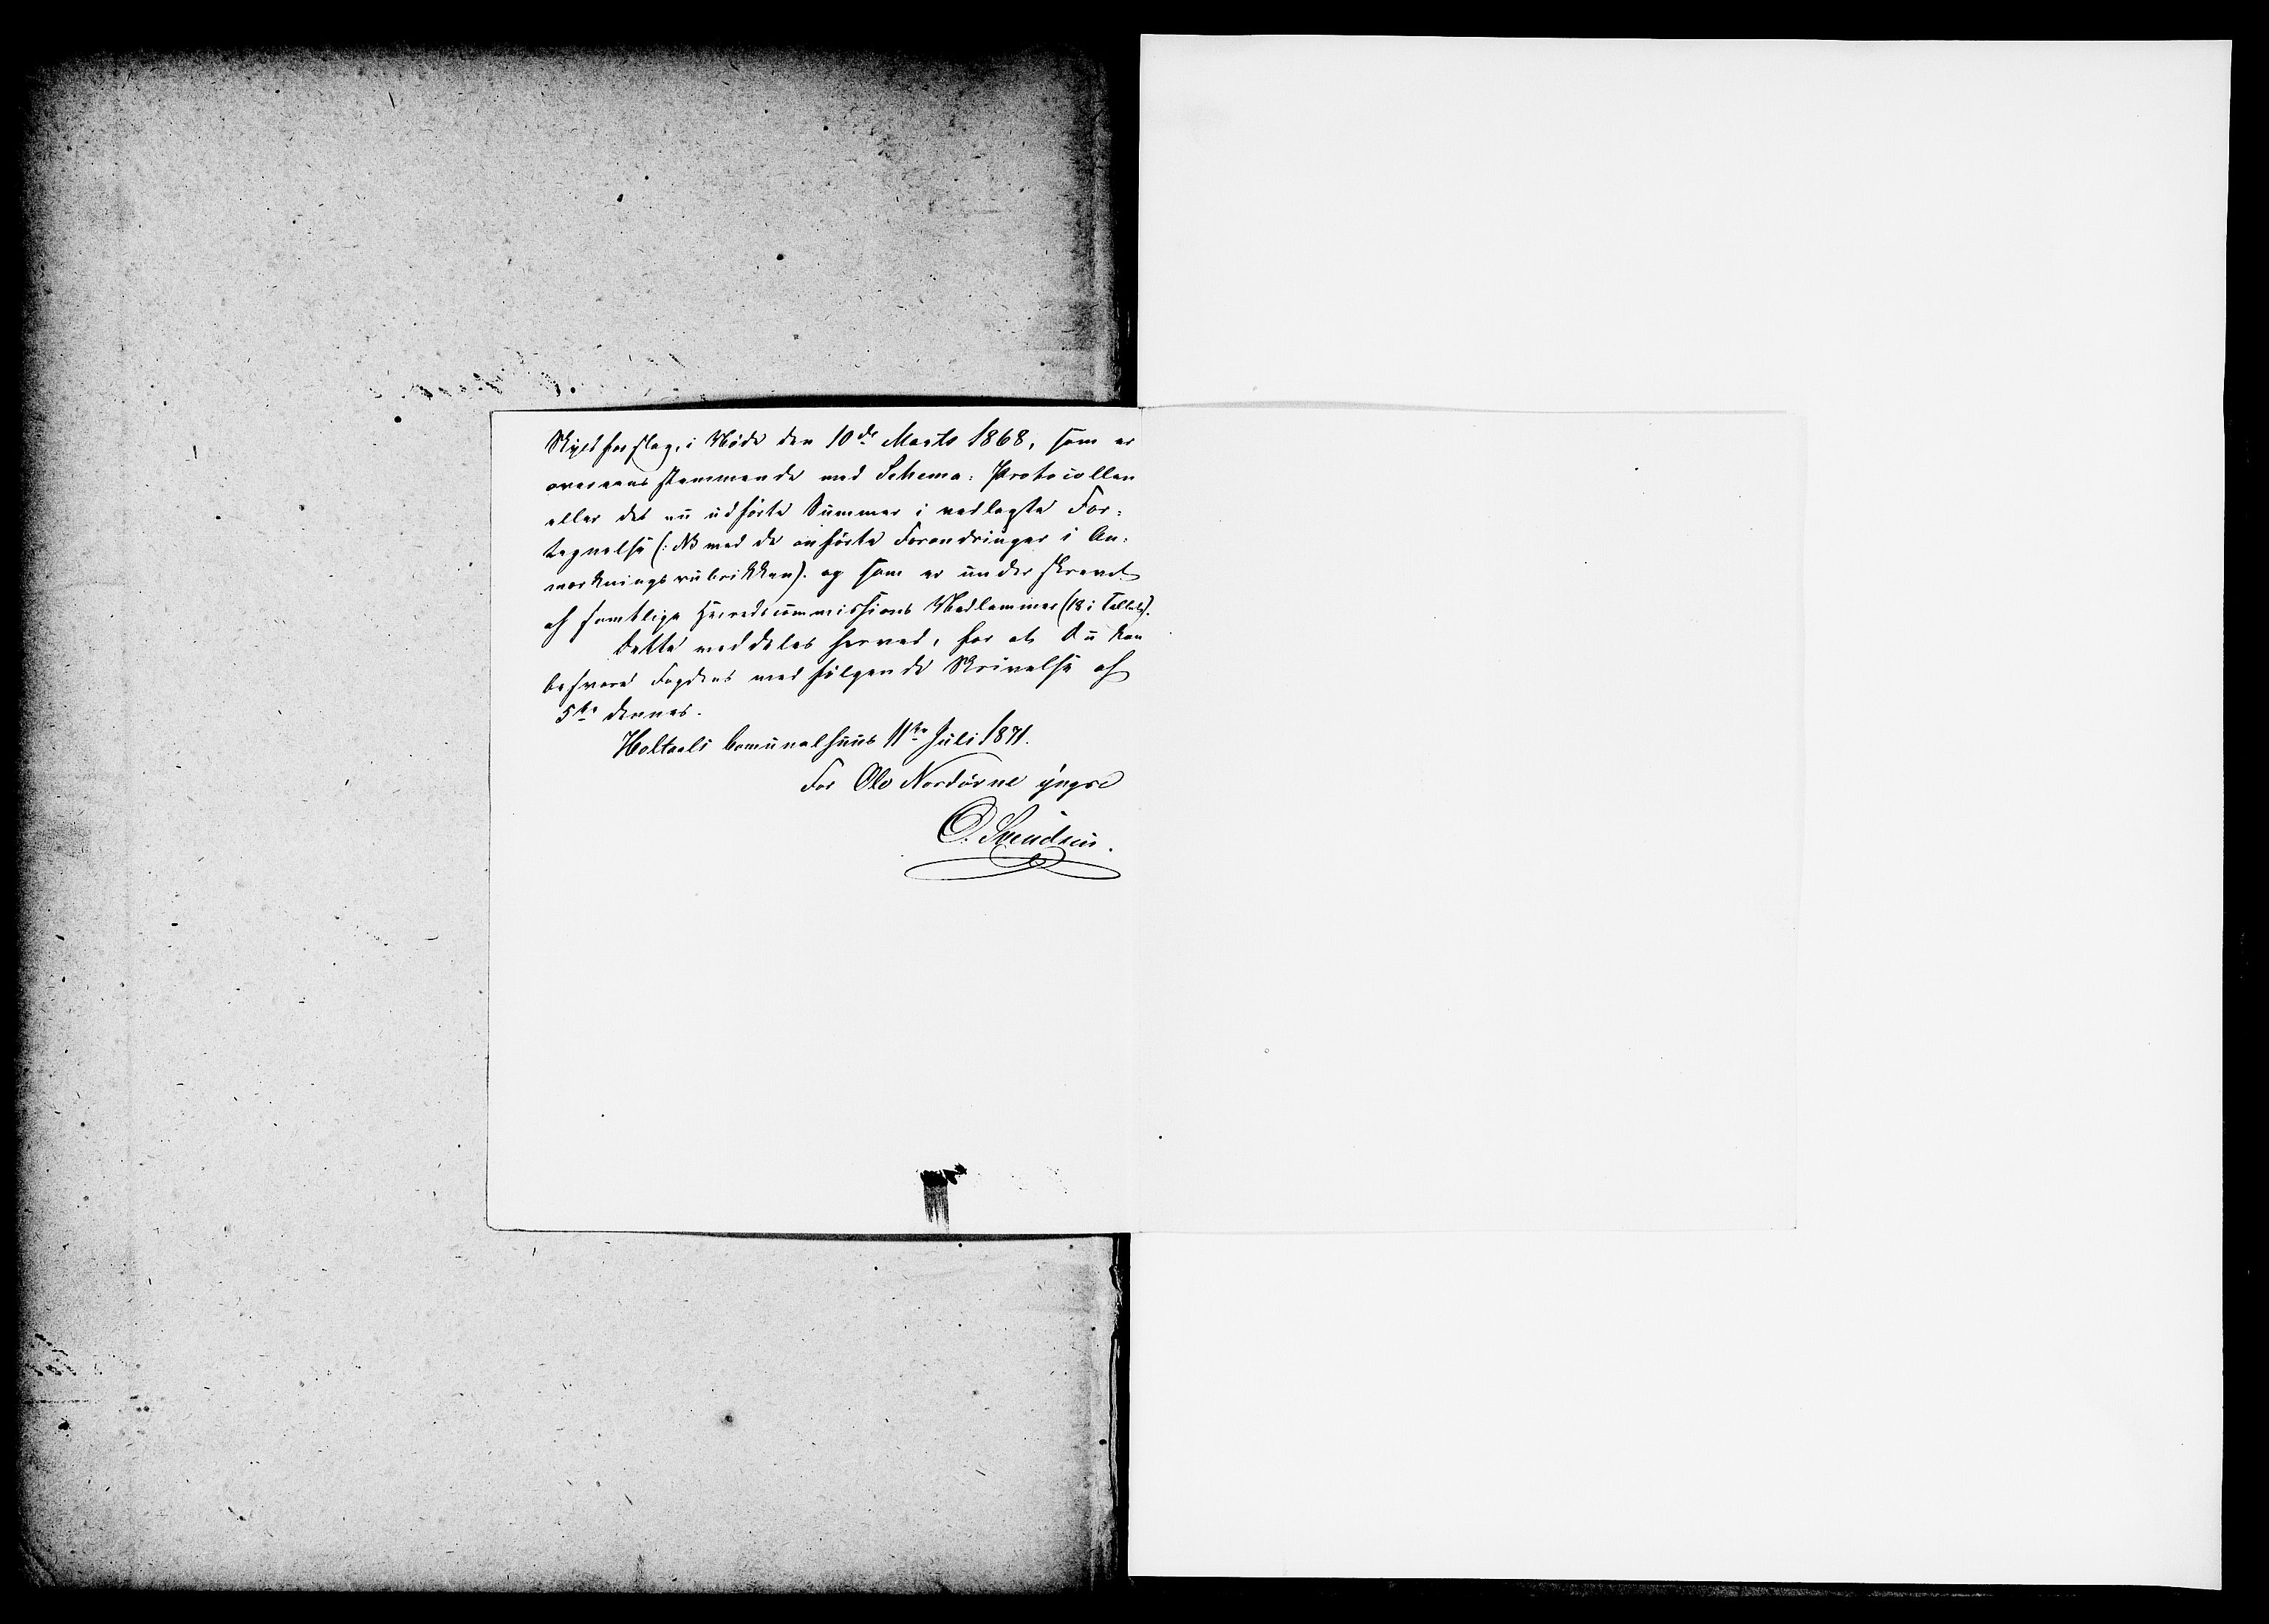 Skyldforslag, i Møde den 10de Marts 1868, som er
overeensstemmende med Schema-Protocollen
eller det nu udførte Summer i vedlagte For-
tegnelse (: NB med de anførte Forandringer i An-
mærkningsrubrikken). og som er underskrevet
af samtlige Herredscommissions Medlemmer (18 i Tallet).
Dette meddeles herved, for at Du kan
besvare Fogdens medfølgende Skrivelse af
5te dennes.
Holtaals Comunalhuus 11te Juli 1871.
For Ole Nordörne yngre
O. Svendsen.